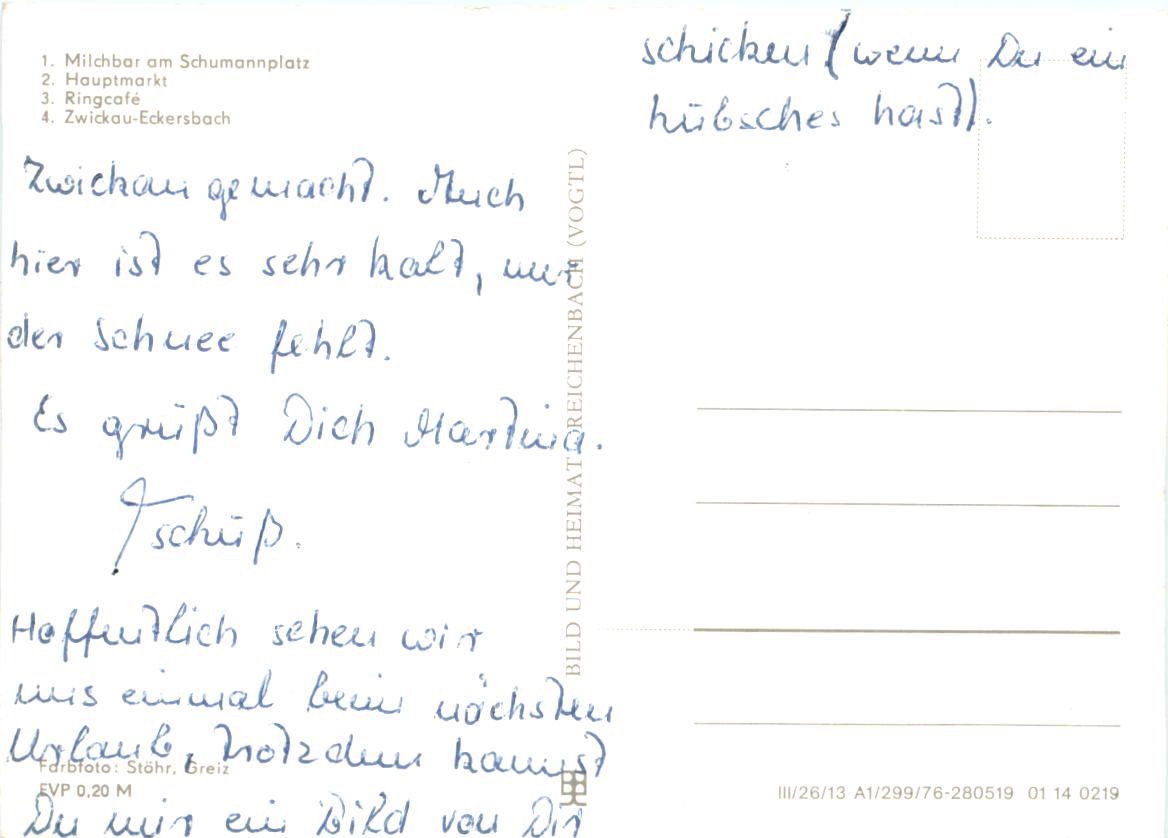 1. Milchbar am Schumannplatz
2. Hauptmarkt
3. Ringcafé
4. Zwickau-Eckersbach
Zwickau gemacht. Auch
hier ist es sehr kalt, nur
der Schnee fehlt.
Es grüßt Dich Martina.
Tschüß.
Hoffentlich sehen wir
uns einmal beim nächsten
Urlaub, trotzdem kannst
Du mir ein Bild von Dir
schicken (wenn Du ein
hübsches hast).
Farbfoto: Stöhr, Greiz
EVP 0,20 M
BILD UND HEIMAT REICHENBACH (VOGTL)
III/26/13 A1/299/76-280519 01 14 0219